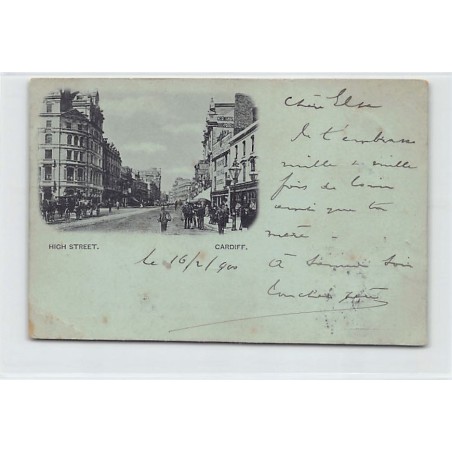 HIGH STREET.
CARDIFF.
le 16/2/900
Chère Else
Je t'embrasse
mille & mille
fois de loin
ainsi que ta
mère
A Samedi soir